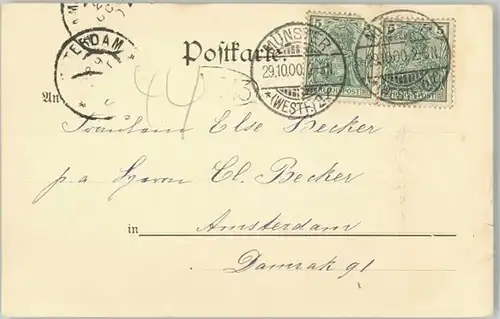 AMSTERDAM
Postkarte.
MÜNSTER
29.10.00.
*(WESTF.)
5 5
REICHSPOST
5 5
REICHSPOST
44
3
An
Fräulein Else Becker
p. a Herrn Cl. Becker
in Amsterdam
Damrak 91